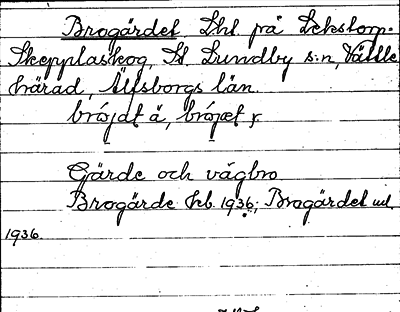 Brogärdet. Lht. på Lekstorp.
Skepplaskog, St. Lundby s:n, Vättle
härad, Älfsborgs län.
brójdt å, brójæt x
Gärde och vägbro
Brogärde Jeb. 1936; Brogärdet utt.
1936.